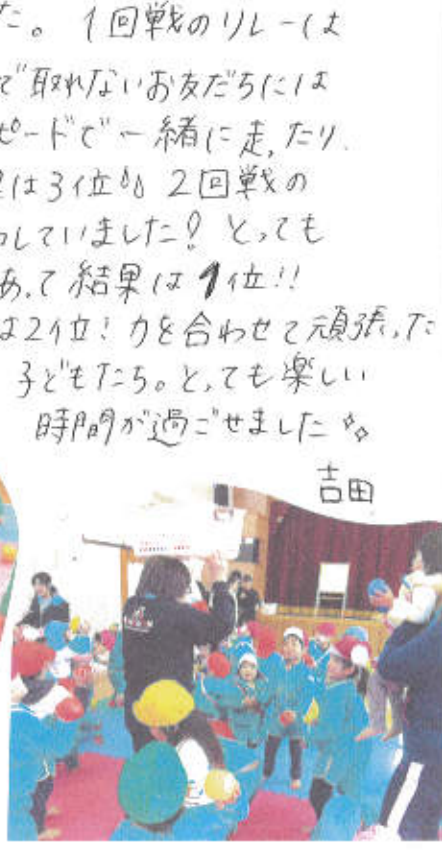 た。1回戦のリレーは
で取れないお友だちには
ピードで一緒に走ったり、
は3位 2回戦の
していました! とっても
あって結果は1位!!
は2位! 力を合わせて頑張った
子どもたち。とっても楽しい
時間が過ごせました
吉田